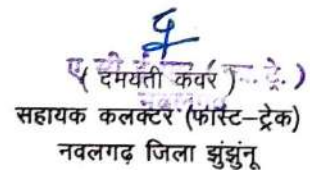 ( दमयंती कंवर )
सहायक कलक्टर (फास्ट–ट्रेक)
नवलगढ़ जिला झुंझुंनू